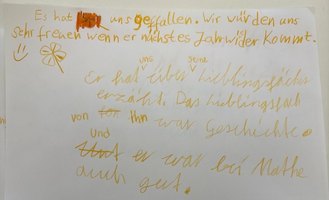 Es hat uns gefallen. Wir würden uns
sehr freuen wenn er nächstes Jahr wider kommt.
Er hat uns über seine Lieblingsfächer
erzählt. Das Lieblingsfach
von ihm war Geschichte.
und er war bei Mathe
auch gut.